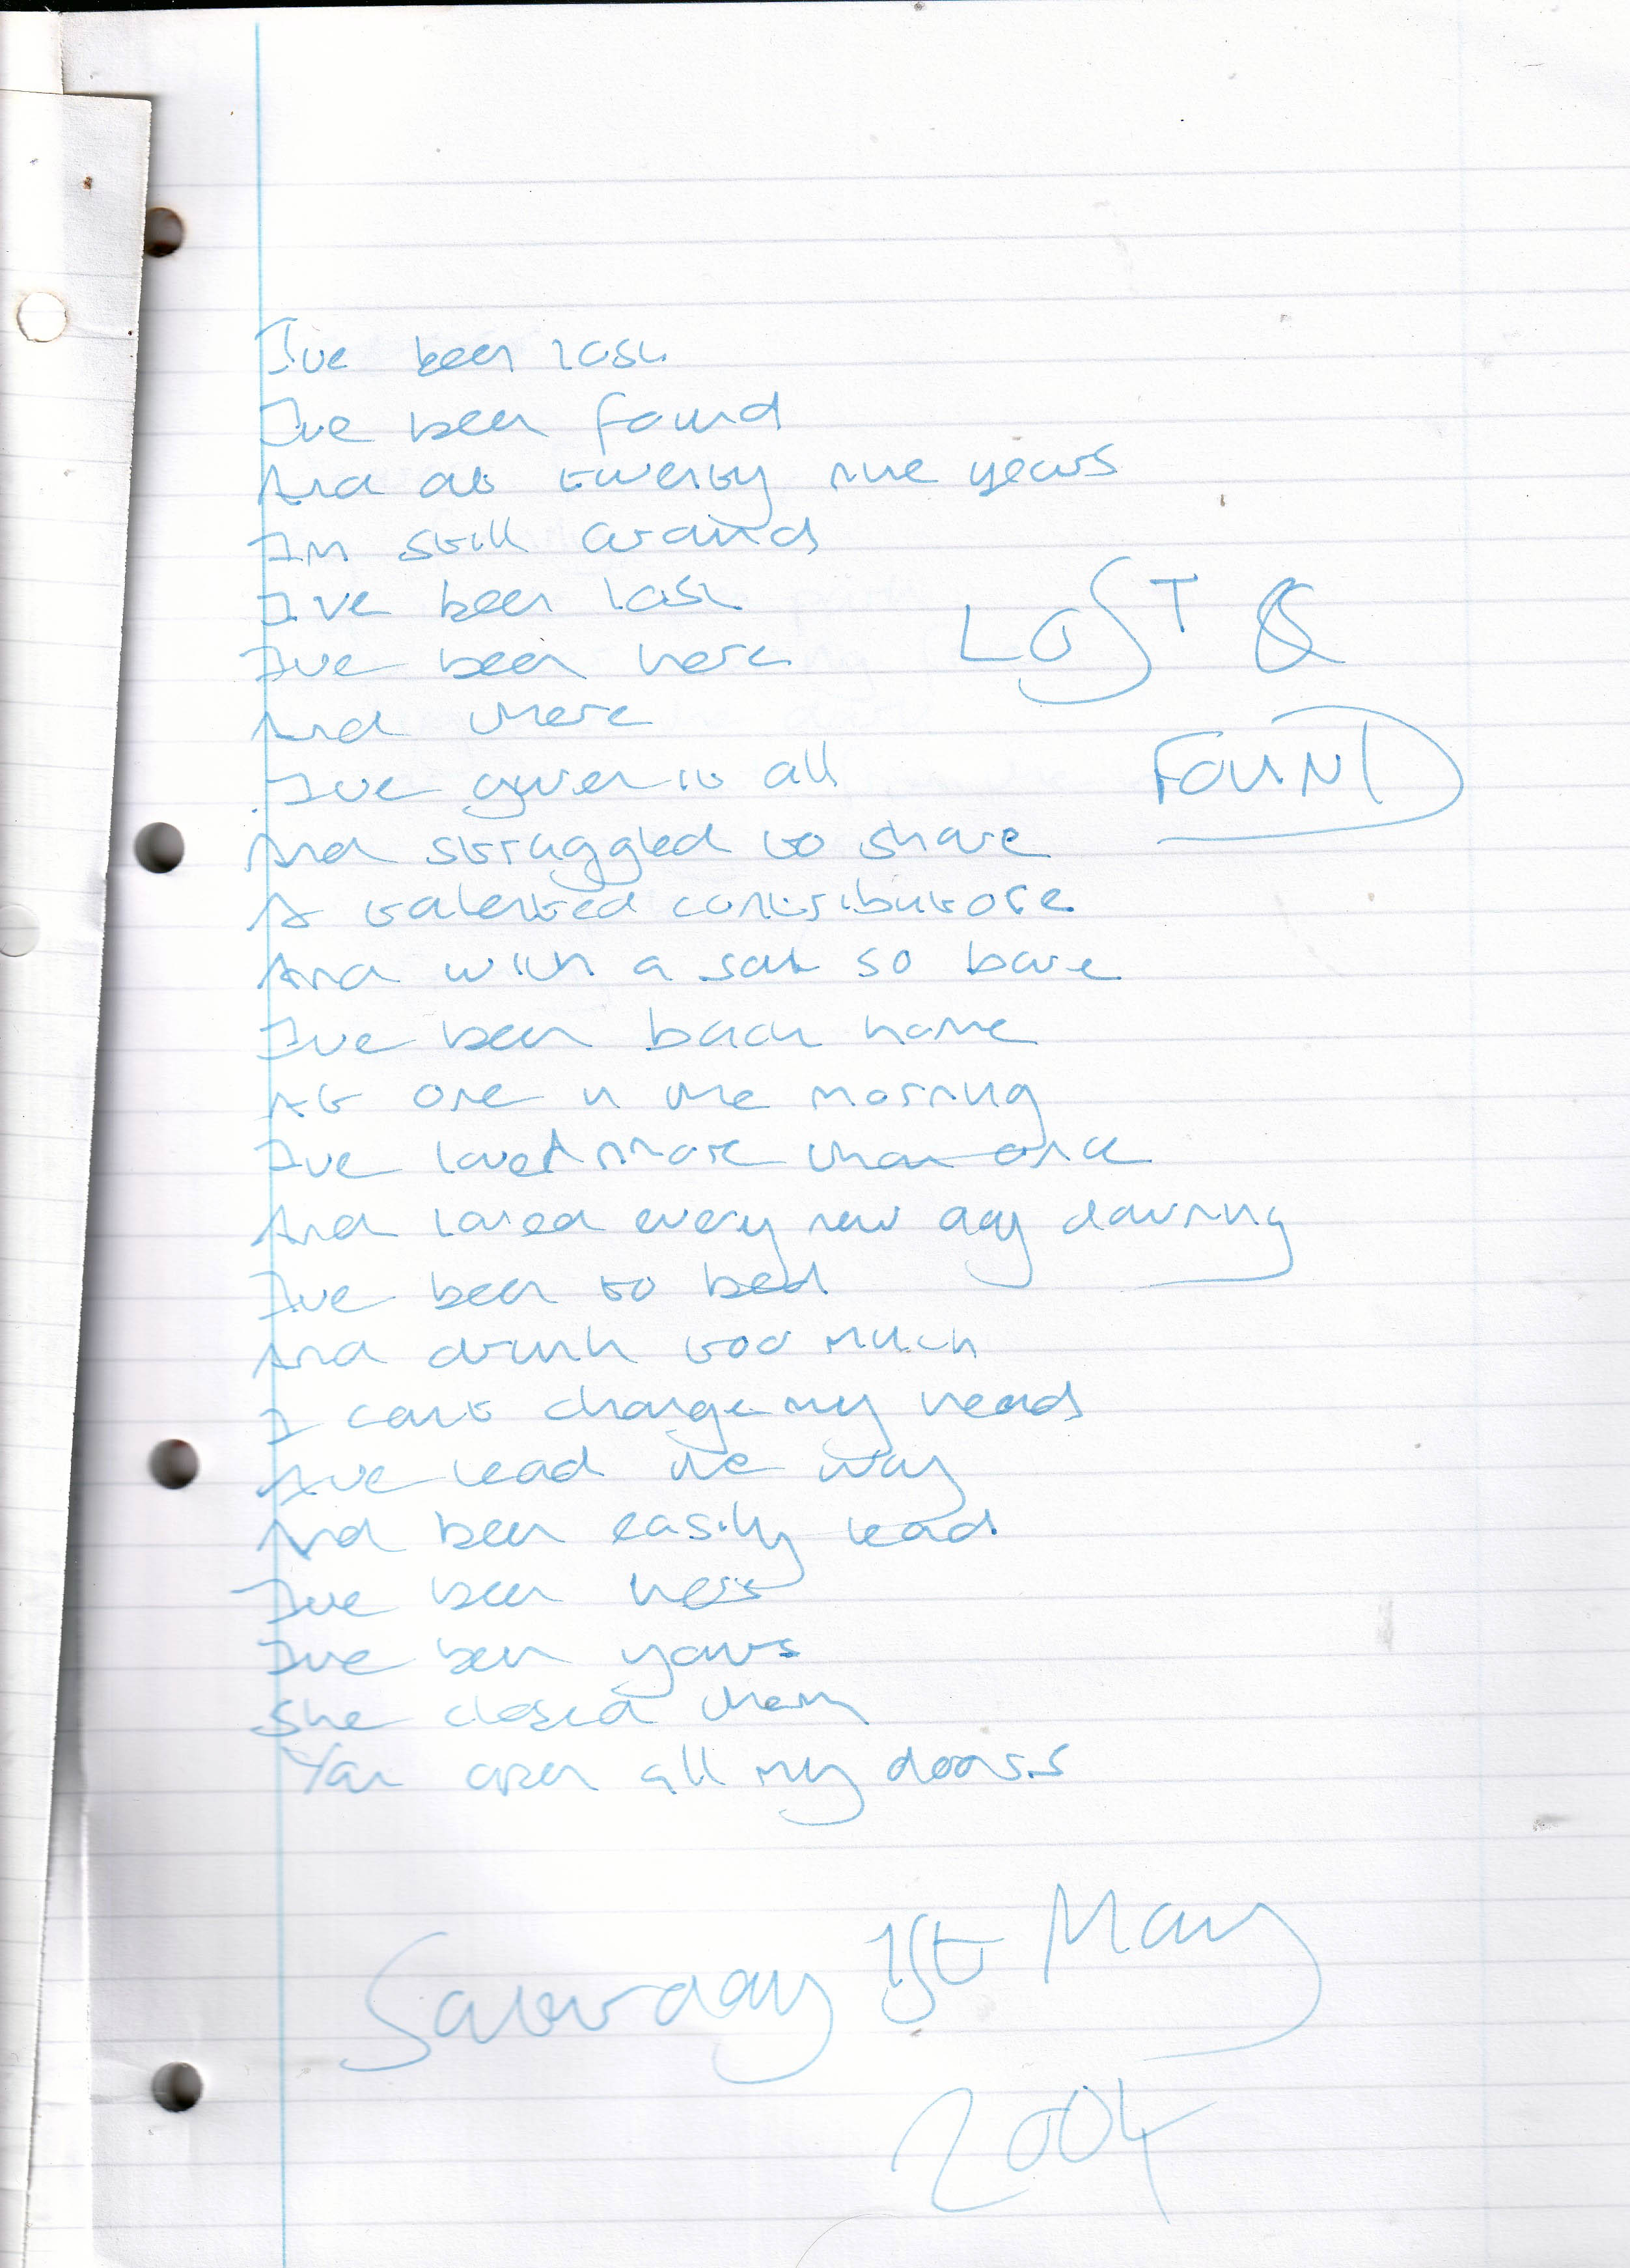 I've been lost
I've been found
And at twenty nine years
Im still around
I've been lost
I've been here
And there
I've given it all
And struggled to share
A talented contributore
And with a soul so bare
I've been back home
At one in the morning
I've loved more than once
And loved every new day dawning
I've been to bed
And drunk too much
I cant change my heads
I've lead the way
And been easily lead
I've been hers
I've been yours
She closed them
You open all my doors
LOST &
FOUND
Saturday 1st May
2004